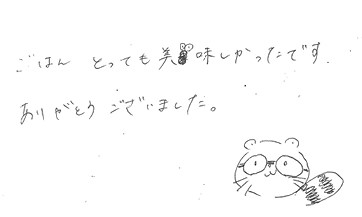 ごはん とっても美味しかったです.
ありがとう ございました。